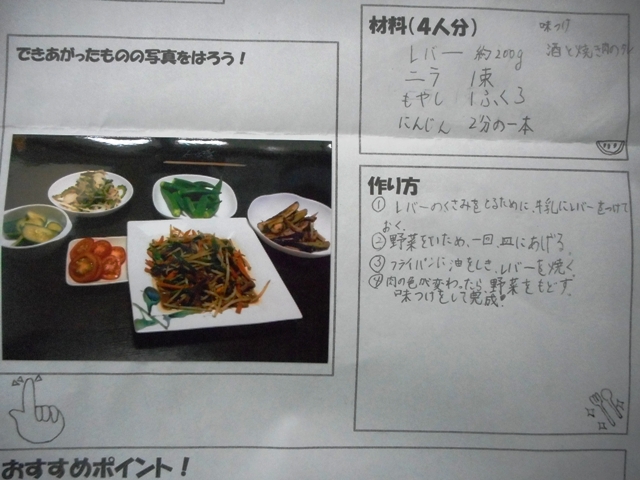 できあがったものの写真をはろう！
材料（４人分）
味つけ
レバー 約200g 酒と焼き肉のタレ
ニラ 1束
もやし 1ふくろ
にんじん 2分の一本
作り方
① レバーのくさみをとるために、牛乳にレバーをつけて
おく。
② 野菜をいため、一回、皿にあげる。
③ フライパンに油をしき、レバーを焼く。
④ 肉の色が変わったら、野菜をもどす。
味つけをして完成！
おすすめポイント！